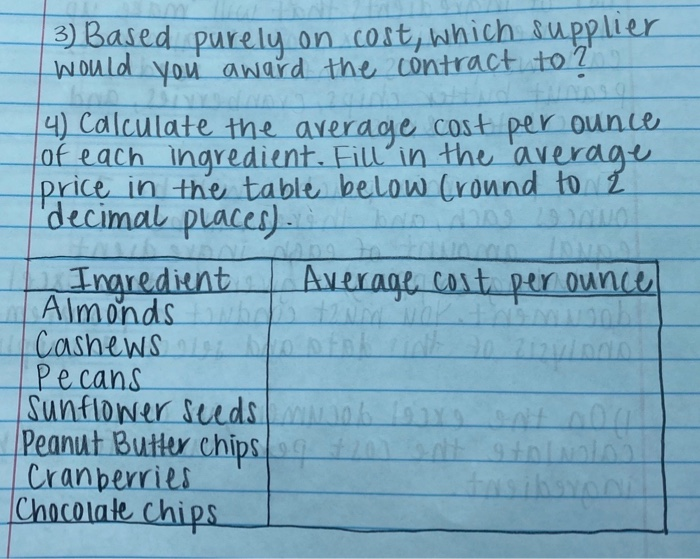 3) Based purely on cost, which supplier
would you award the contract to?
4) Calculate the average cost per ounce
of each ingredient. Fill in the average
price in the table below (round to 2
decimal places).
Ingredient Average cost per ounce
Almonds
Cashews
Pecans
Sunflower seeds
Peanut Butter chips
Cranberries
Chocolate chips